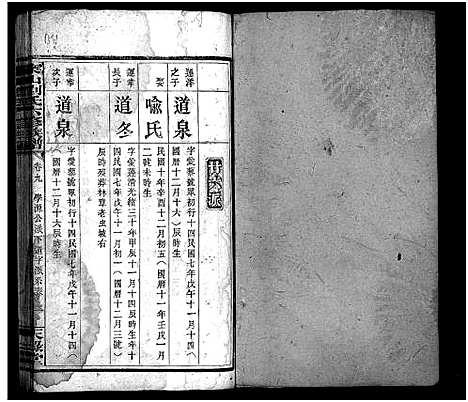 廿六派
運洋之子 道泉
字愛藜號翠初行十四民國七年戊午十一月十四
(國曆十二月十六)辰時生
娶 喩氏
民國十年辛酉十二月初五(國曆十一年壬戌一月
二號未時生
運幸長子 道冬
字愛蓬清光緒三十年甲辰十一月十四辰時生年十
四民國七年戊午十一月初一(國曆十二月三號)
辰時歿葬林章老虫坡右
運幸次子 道泉
字愛藜號翠初行十四民國七年戊午十一月十四
(國曆十二月十六)辰時生
卷九